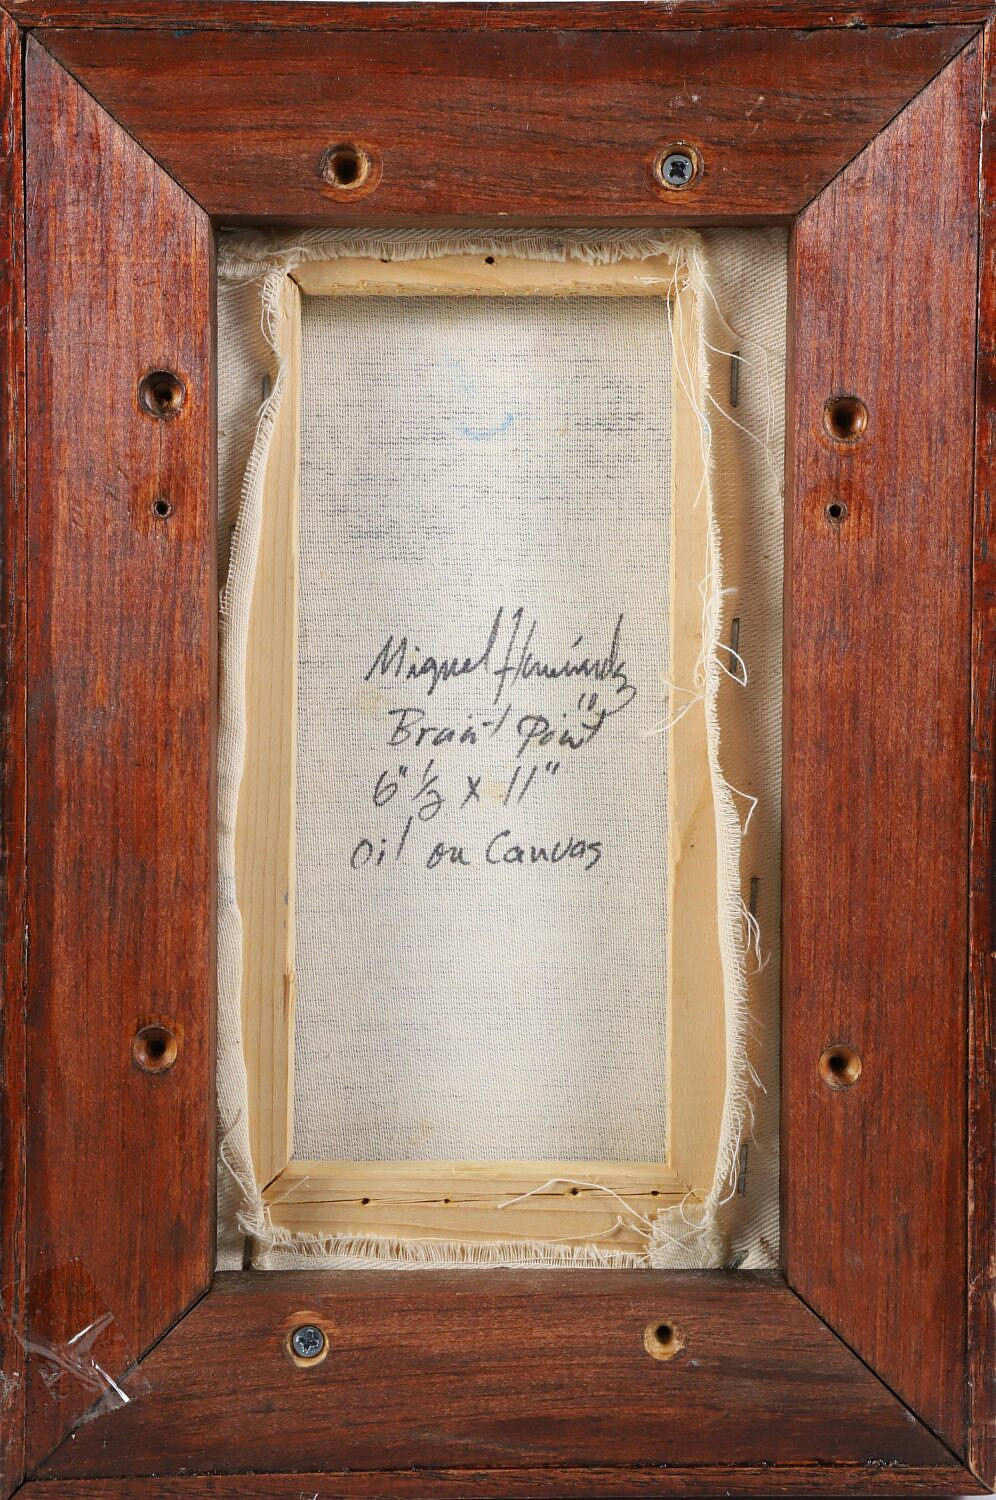 Miguel Hernández
Braint Point"
6" 1/2 x 11"
Oil on Canvas